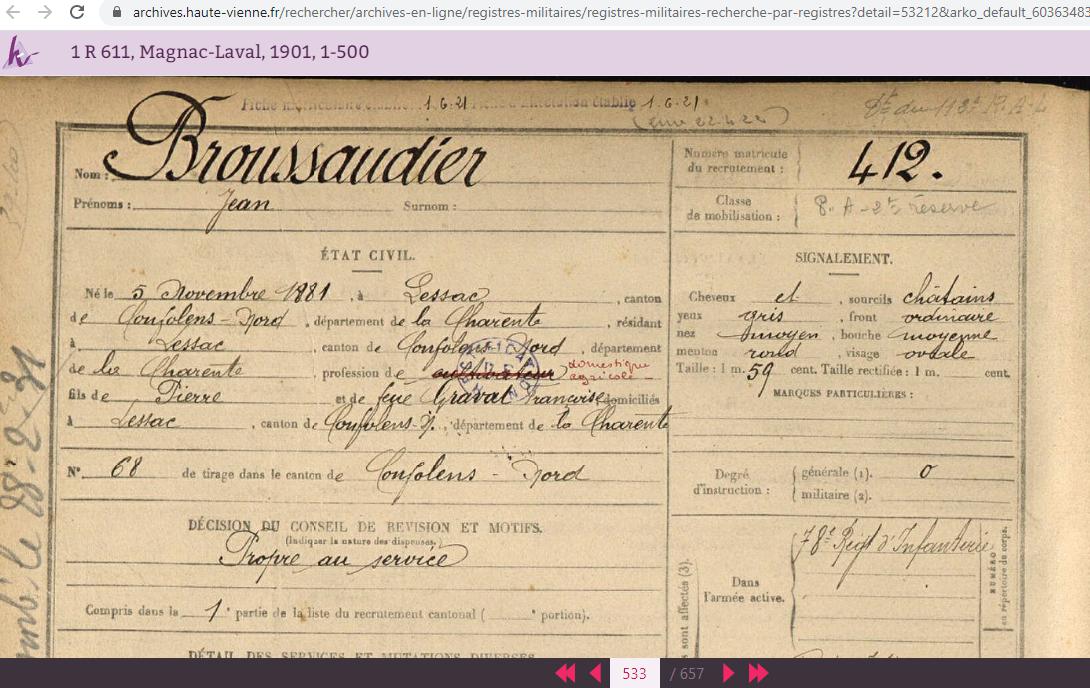 archives.haute-vienne.fr/rechercher/archives-en-ligne/registres-militaires/registres-militaires-recherche-par-registres?detail=53212&arko_default_60363483
1 R 611, Magnac-Laval, 1901, 1-500
1.6.21 Fiche d'affectation établie 1.6.21
Nom : Broussaudier
Prénoms : Jean Surnom :
Numéro matricule du recrutement : 412.
Classe de mobilisation : réserve
ÉTAT CIVIL.
Né le 5 Novembre 1881, à Lessac, canton
de Confolens-Nord, département de la Charente, résidant
à Lessac, canton de Confolens-Nord, département
de la Charente, profession de cultivateur domestique agricole
fils de Pierre et de feue Gravat Françoise, domiciliés
à Lessac, canton de Confolens-N., département de la Charente
N° 68 de tirage dans le canton de Confolens-Nord
SIGNALEMENT.
Cheveux et, sourcils châtains
yeux gris, front ordinaire
nez moyen, bouche moyenne
menton rond, visage ovale
Taille : 1 m. 59 cent. Taille rectifiée : 1 m. cent.
MARQUES PARTICULIÈRES :
Degré d'instruction :
générale (1). 0
militaire (2).
DÉCISION DU CONSEIL DE REVISION ET MOTIFS.
(Indiquer la nature des dispenses.)
Propre au service
Compris dans la 1e partie de la liste du recrutement cantonal ( e portion).
Dans l'armée active.
78e Régt d'Infanterie
NUMÉRO
au répertoire du corps.
sont affectés (3).
DÉTAIL DES SERVICES ET MUTATIONS DIVERSES
533 / 657